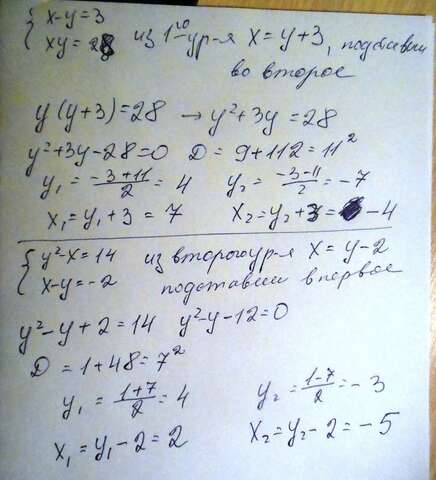 { x-y=3
xy=28 из 1го ур-я x=y+3, подставим
во второе
y(y+3)=28 → y²+3y=28
y²+3y-28=0 D=9+112=11²
y₁=\frac{-3+11}{2}=4 y₂=\frac{-3-11}{2}=-7
x₁=y₁+3=7 x₂=y₂+3=-4
{ y²-x=14 из второго ур-я x=y-2
x-y=-2 подставим в первое
y²-y+2=14 y²-y-12=0
D=1+48=7²
y₁=\frac{1+7}{2}=4 y₂=\frac{1-7}{2}=-3
x₁=y₁-2=2 x₂=y₂-2=-5